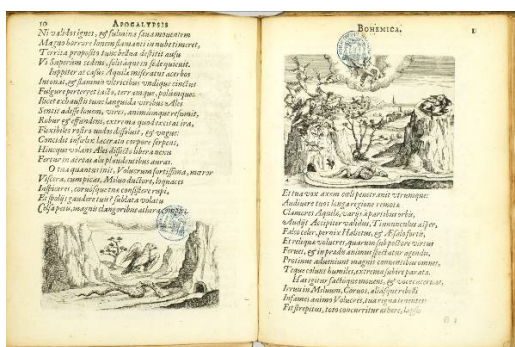 10 APOCALYPSIS
Ni validos ignes, & fulmina saeua mouentem
Magno horrore Iouem flammanti in nube timeret,
Territa proposito tunc bestia destitit ausu
Vi Superûm cedens, solitâ quem sede quieuit.
Iuppiter at casus Aquilae miseratus acerbos
Intonat, & flammis vltricibus vndique cinctus
Fulgure perterret iacto, terramque, polumque:
Ilicet exhaustis tunc languida viribus Ales
Sentit adesse Iouem, vires, animumque resumit,
Robur & offendens, extrema quod excitat ira,
Flexibiles rostro nodos dissoluit, & vngue:
Concidit infelix lacerato corpore serpens,
Hincque volans Ales dissecto libera nexu
Fertur in aetereas alis plaudentibus auras.
O tua quanta
Viscera, cum picas, Miluo ductore, loquaces
Inspiceres, coruosque tuo
Et spolijs gaudere tuis? sublata volatu
Celsa petis, magnis clangoribus aethera complens.
BOHEMICA. 11
Et tua vox axem coeli penetrauit vtrumque:
Audiuere tuos longa regione remoti
Clamores Aquilae, varijs à partibus orbis,
Audijt Accipiter validus, Tinnunculus asper,
Falco celer, pernix Halietus, & AEsalo fortis,
Et reliquae volucres, quarum sub pectore virtus
Feruet, & in praedam animus spectatur agendis,
Protinus adueniunt magnis conuentibus omnes,
Teque colunt humiles, extrema subire parata.
Has igitur
Irruis in Miluum, Coruos, aliasque rebelli
Infames animo Volucres, tua regna tenentes:
Fit strepitus, toto concurritur aethere, longo